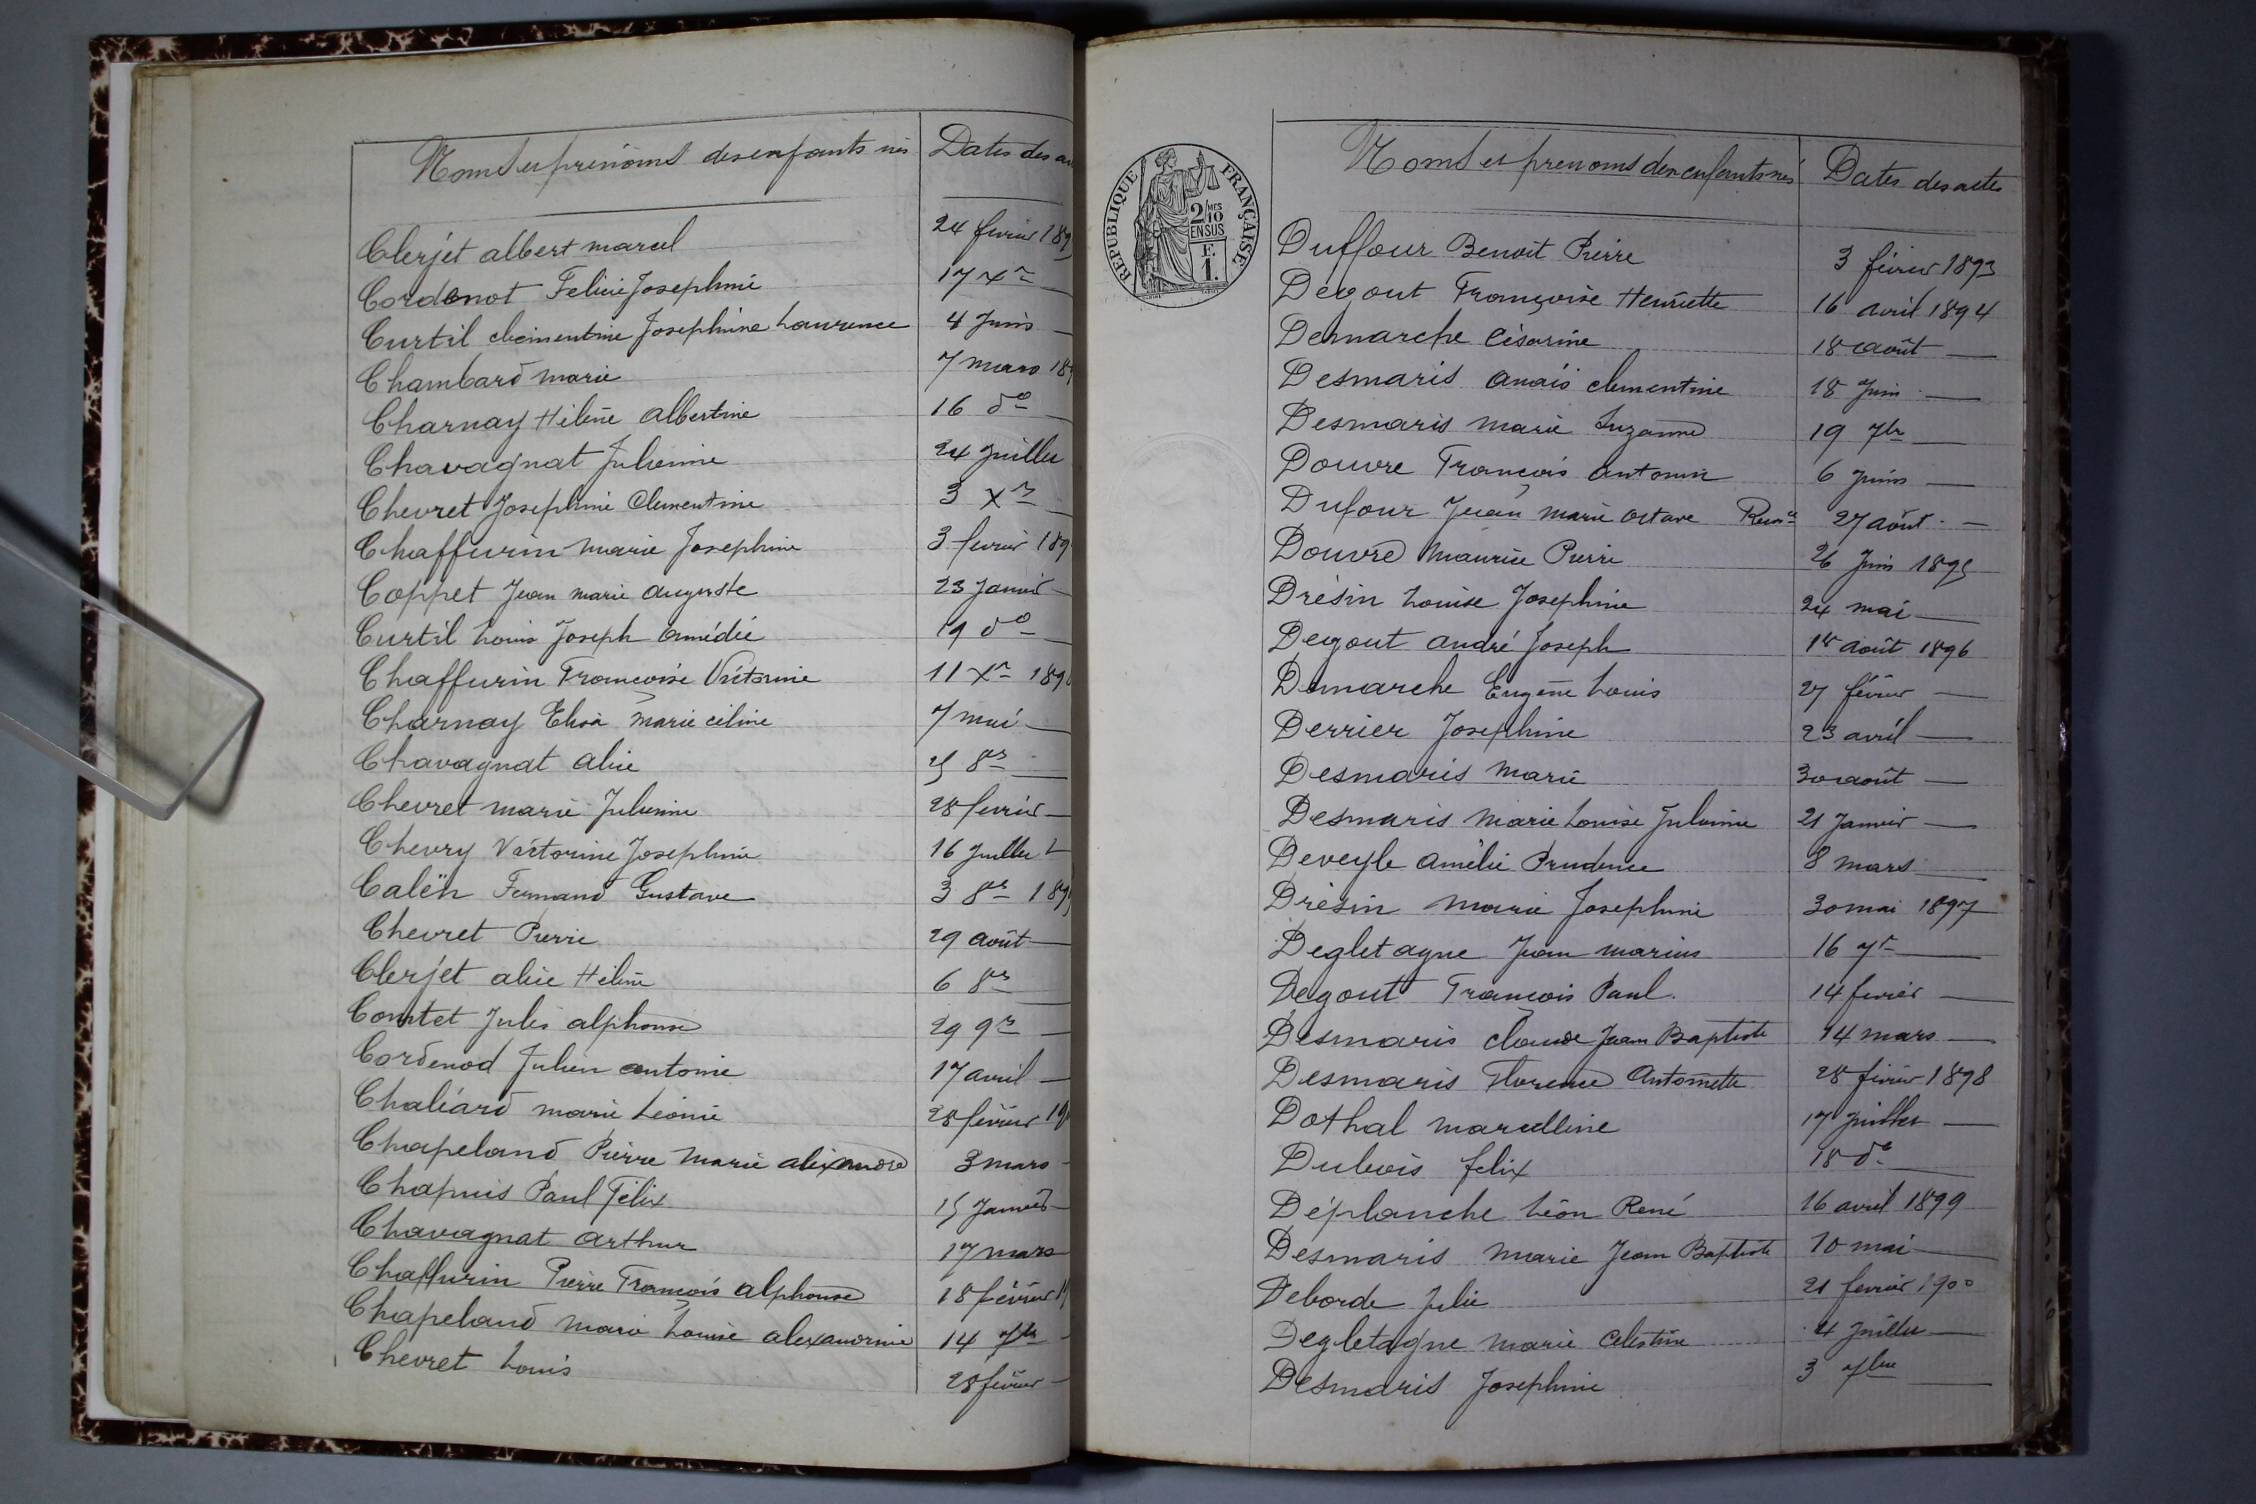 Noms et prénoms des enfants nés Dates des
Clerjét albert marcel 24 février 189
Cordenot Felicie Josephine 17 Xre —
Curtil clementine Josephine Laurence 4 Juin —
Chambard marie 7 mars 189
Charnay Hélène albertine 16 do —
Chavagnat Julienne 24 Juillet
Chevret Josephine Clementine 3 Xre —
Chaffurin marie Josephine 3 fevrier 189
Coppet Jean marie auguste 23 Janvier —
Curtil Louis Joseph amédée 19 do —
Chaffurin Françoise Victorine 11 Xre 189
Charnay Elisa marie céline 7 mai —
Chavagnat alice 25 8re —
Chevret marie Julienne 28 fevrier —
Chevry Victorine Josephine 16 Juillet
Calën Fernand Gustave 3 8re 189
Chevret Pierre 29 août —
Clerjet alice Hélène 6 8re —
Comtet Jules alphonse 29 9re —
Cordenod Julien antoine 17 avril —
Chaliard marie Léonie 28 février 18
Chapeland Pierre Marie alexandre 3 mars -
Chapuis Paul Félix 15 Janvier —
Chavagnat arthur 17 mars
Chaffurin Pierre François alphonse 18 février 1
Chapeland marie Louise alexandrine 14 7bre -
Chevret Louis 28 février —
RÉPUBLIQUE FRANÇAISE
2/10 MES
EN SUS
F.
1.
Noms et prenoms des enfants nés Dates des actes
Duffour Benoit Pierre 3 février 1893
Dégout Françoise Henriette 16 avril 1894
Demarche Césarine 18 août —
Desmaris anaïs clementine 18 Juin —
Desmaris marie Suzanne 19 7bre —
Douvre François antonin 6 Juin —
Dufour Jean marie octave Recce 27 août —
Douvre Maurice Pierre 26 Juin 1895
Drésin Louise Josephine 24 mai —
Degout andré Joseph 18 août 1896
Demarche Eugène Louis 27 février —
Derrier Josephine 23 avril —
Desmaris Marie 30 août —
Desmaris Marie Louise Julienne 21 Janvier —
Deveyle amélie Prudence 8 mars —
Drésin Marie Josephine 30 mai 1897
Degletagne Jean marius 16 7re —
Degout François Paul. 14 fevrier —
Desmaris claude Jean Baptiste 14 mars —
Desmaris Florence Antoinette 28 février 1898
Dothal marcelline 17 Juillet —
Dubois felix 18 do —
Déplanche Léon René 16 avril 1899
Desmaris Marie Jean Baptiste 10 mai —
Deborde Julie 21 fevrier 1900
Degletagne marie Celestine 4 Juillet —
Desmaris Josephine 3 7bre —